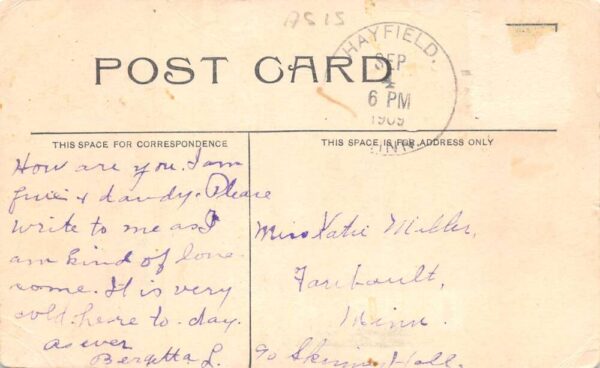 A515
HAYFIELD.
SEP
6 PM
1909
MINN.
POST CARD
THIS SPACE FOR CORRESPONDENCE
THIS SPACE IS FOR ADDRESS ONLY
How are you. I am
fine & dandy. Please
write to me as I
am kind of lone-
some. It is very
cold here to-day.
as ever
Bergetta L.
Miss Katie Miller,
Faribault,
Minn.
℅ Skinner Hall.